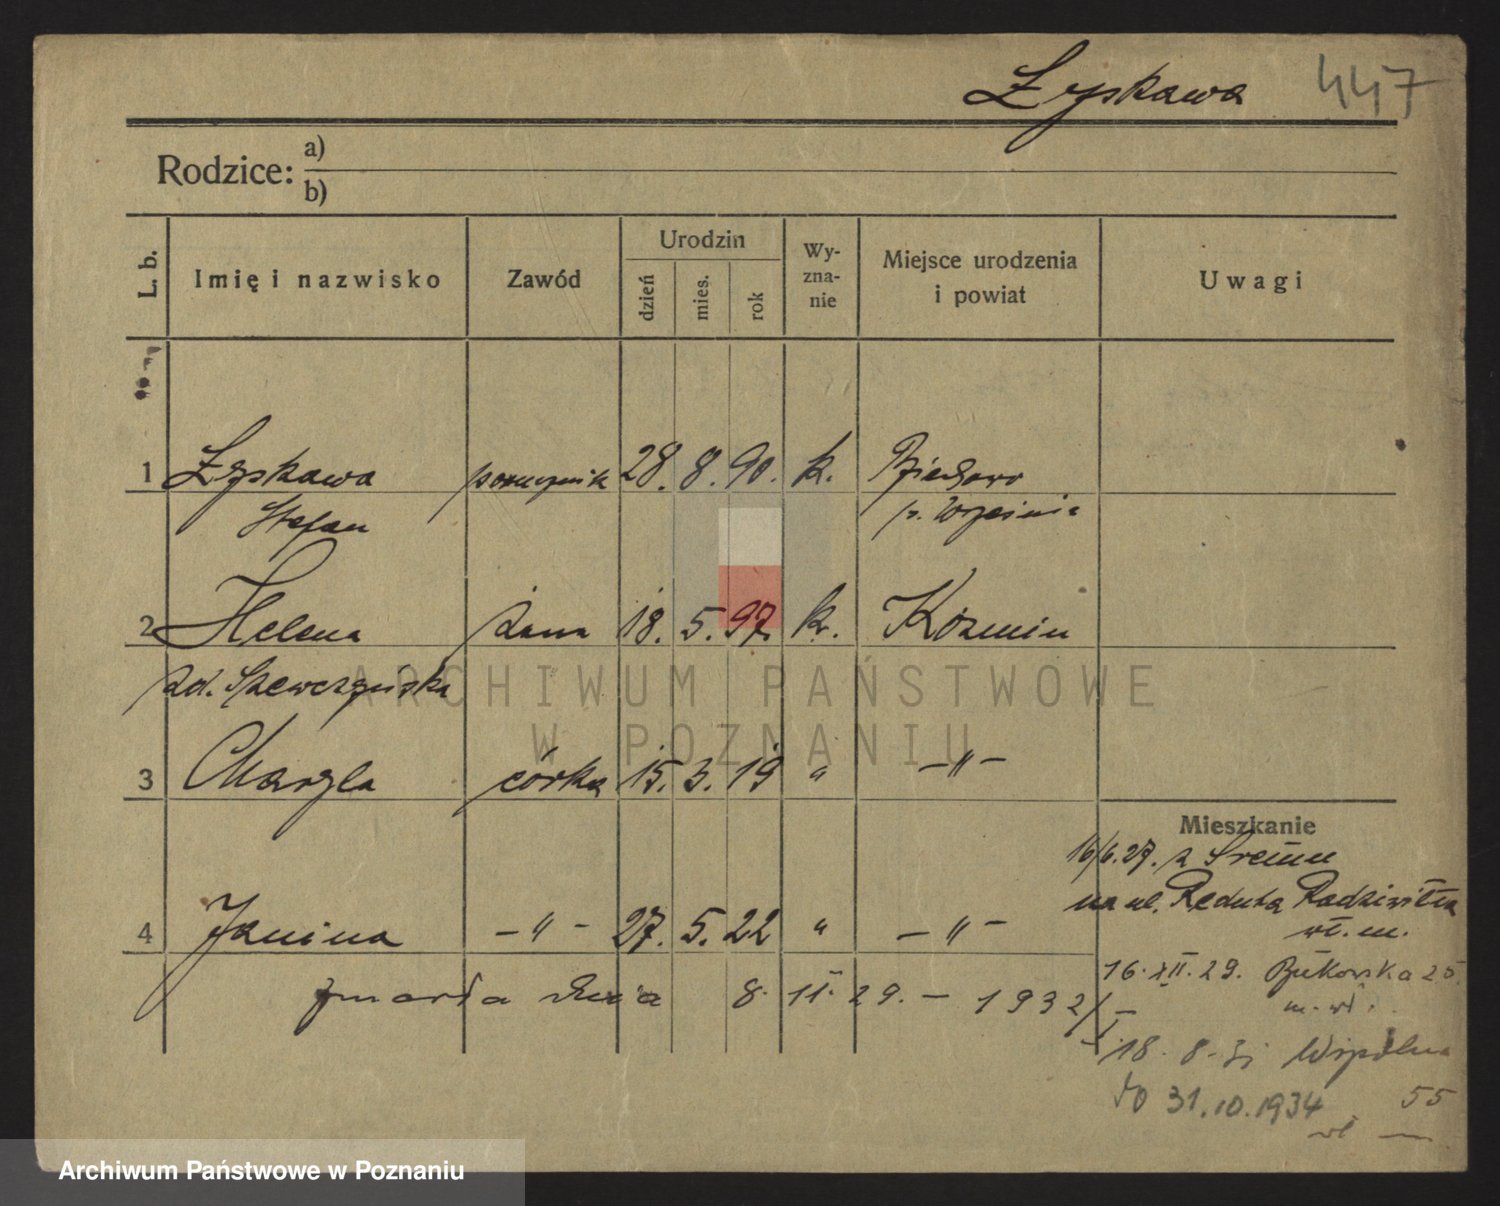 Łyskawa 447
Rodzice: a)
b)
L. b. Imię i nazwisko Zawód Urodzin dzień mies. rok Wy-zna-nie Miejsce urodzenia i powiat Uwagi
1 Łyskawa porucznik 28. 8. 90. k. Biechowo
Stefan p. Września
2 Helena żona 18. 5. 97. k. Koźmin
zd. Szewczyńska
3 Maryla córka 15. 3. 19 " – " –
Mieszkanie
16/6.27. z Śremu
na ul. Reduta Radziwiłła
wł. m.
4 Janina – " – 27. 5. 22 " – " –
16. XII. 29. Bukowska 25.
m. wł.
zmarła dnia 8. II. 29. – 1932/I
18. 8. 31 Wspólna
55
do 31.10.1934
wł
ARCHIWUM PAŃSTWOWE
W POZNANIU
Archiwum Państwowe w Poznaniu